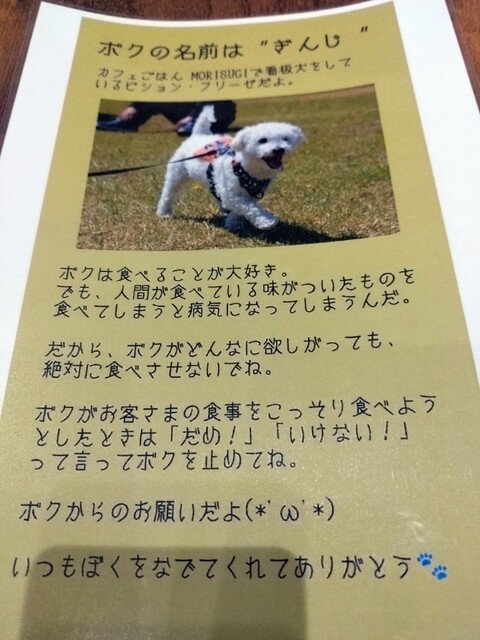 ボクの名前は "ぎんじ "
カフェごはん MORISUGIで看板犬をして
いるビション・フリーゼだよ。
ボクは食べることが大好き。
でも、人間が食べている味がついたものを
食べてしまうと病気になってしまうんだ。
だから、ボクがどんなに欲しがっても、
絶対に食べさせないでね。
ボクがお客さまの食事をこっそり食べよう
としたときは「だめ！」「いけない！」
って言ってボクを止めてね。
ボクからのお願いだよ(*'ω'*)
いつもぼくをなでてくれてありがとう🐾